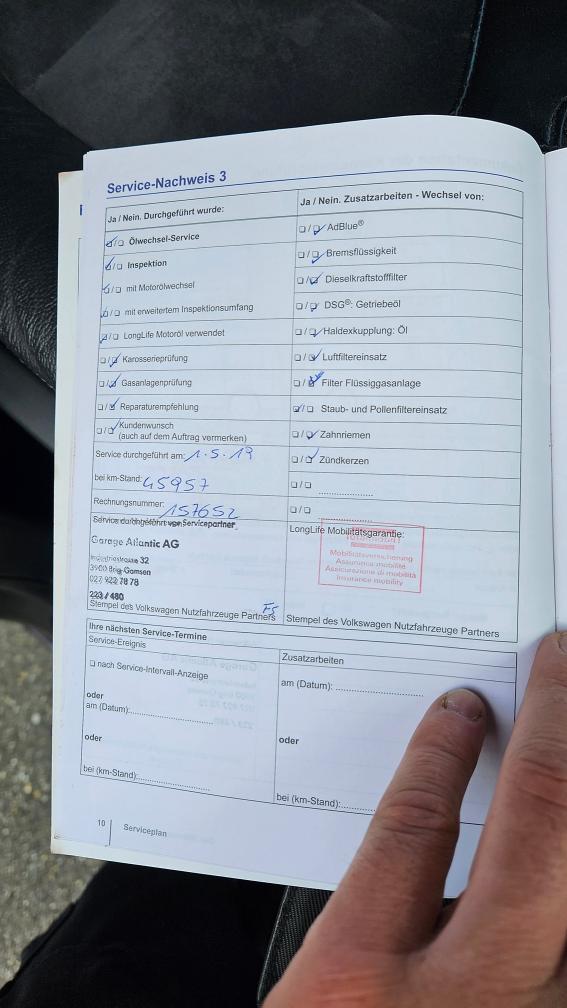 Service-Nachweis 3
Ja / Nein. Durchgeführt wurde:
☑/☐ Ölwechsel-Service
☑/☐ Inspektion
☑/☐ mit Motorölwechsel
☑/☐ mit erweitertem Inspektionsumfang
☑/☐ LongLife Motoröl verwendet
☐/☑ Karosserieprüfung
☐/☑ Gasanlagenprüfung
☐/☑ Reparaturempfehlung
☐/☑ Kundenwunsch
(auch auf dem Auftrag vermerken)
Service durchgeführt am: 1.5.19
bei km-Stand: 45957
Rechnungsnummer: 157652
Service durchgeführt von Servicepartner
Garage Atlantic AG
Industriestrasse 32
3900 Brig-Gamsen
027 922 78 78
223 / 480
FS
Stempel des Volkswagen Nutzfahrzeuge Partners
Ja / Nein. Zusatzarbeiten - Wechsel von:
☐/☑ AdBlue®
☐/☑ Bremsflüssigkeit
☐/☑ Dieselkraftstofffilter
☐/☑ DSG®: Getriebeöl
☐/☑ Haldexkupplung: Öl
☐/☑ Luftfiltereinsatz
☐/☑ Filter Flüssiggasanlage
☑/☐ Staub- und Pollenfiltereinsatz
☐/☑ Zahnriemen
☐/☑ Zündkerzen
☐/☐ ....................
☐/☐ ....................
LongLife Mobilitätsgarantie:
Mobilitätsversicherung
Assurance mobilité
Assicurazione di mobilità
Insurance mobility
Stempel des Volkswagen Nutzfahrzeuge Partners
Ihre nächsten Service-Termine
Service-Ereignis
☐ nach Service-Intervall-Anzeige
oder
am (Datum):....................
oder
bei (km-Stand):....................
Zusatzarbeiten
am (Datum): ....................
oder
bei (km-Stand):..........
10
Serviceplan